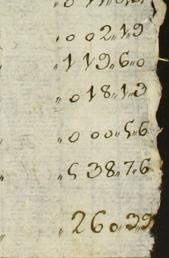 „0 0 2„1„9
„1 1 9„6„0
„0 1 8„1„3
„0 0 0„5„6
„5 3 8„7„6
„2 6 0„3 9